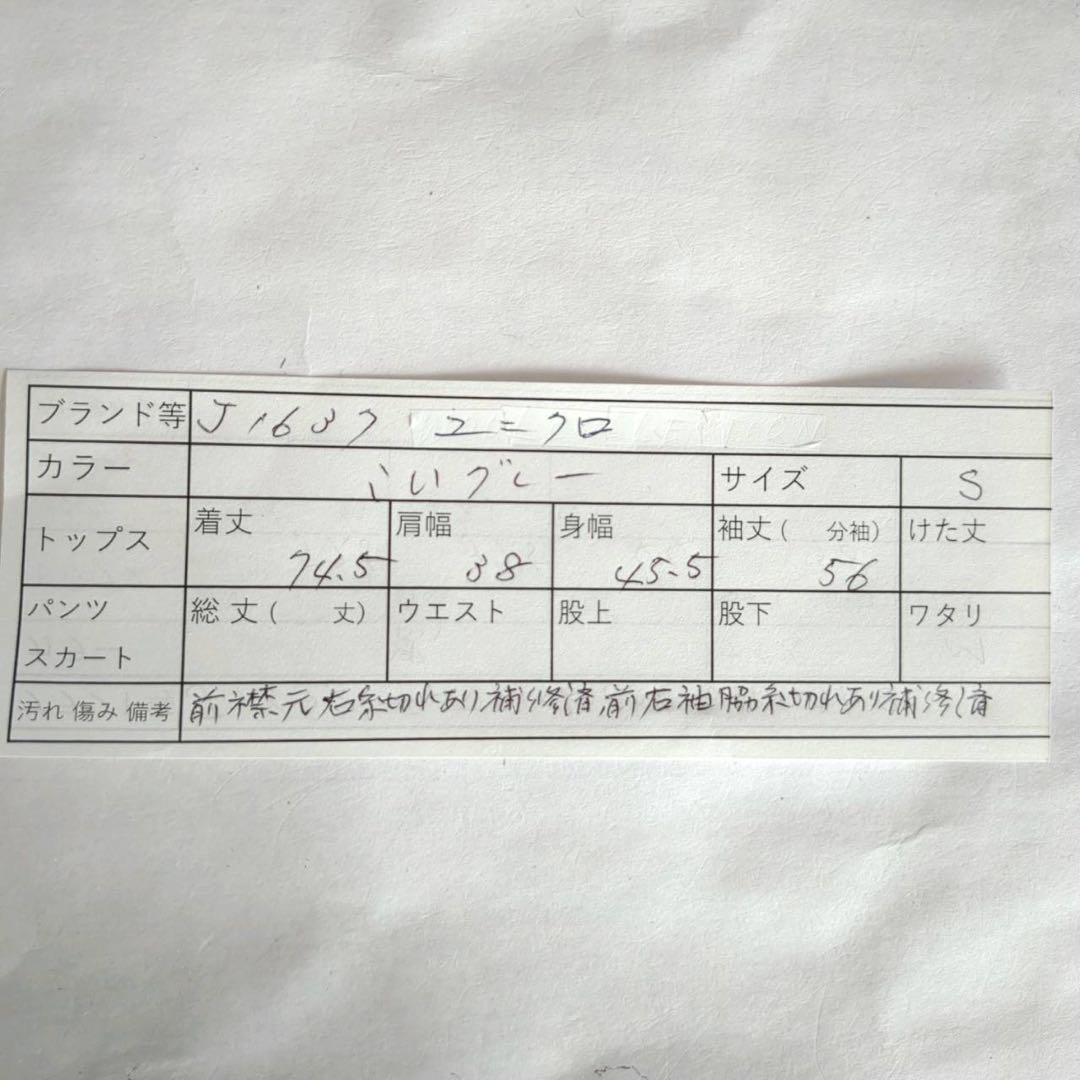 ブランド等 J1637 ユニクロ
カラー こいグレー サイズ S
トップス 着丈 74.5 肩幅 38 身幅 45.5 袖丈( 分袖) 56 けた丈
パンツ スカート 総丈( 丈) ウエスト 股上 股下 ワタリ
汚れ 傷み 備考 前襟元右糸切れあり補修済前右袖脇糸切れあり補修済